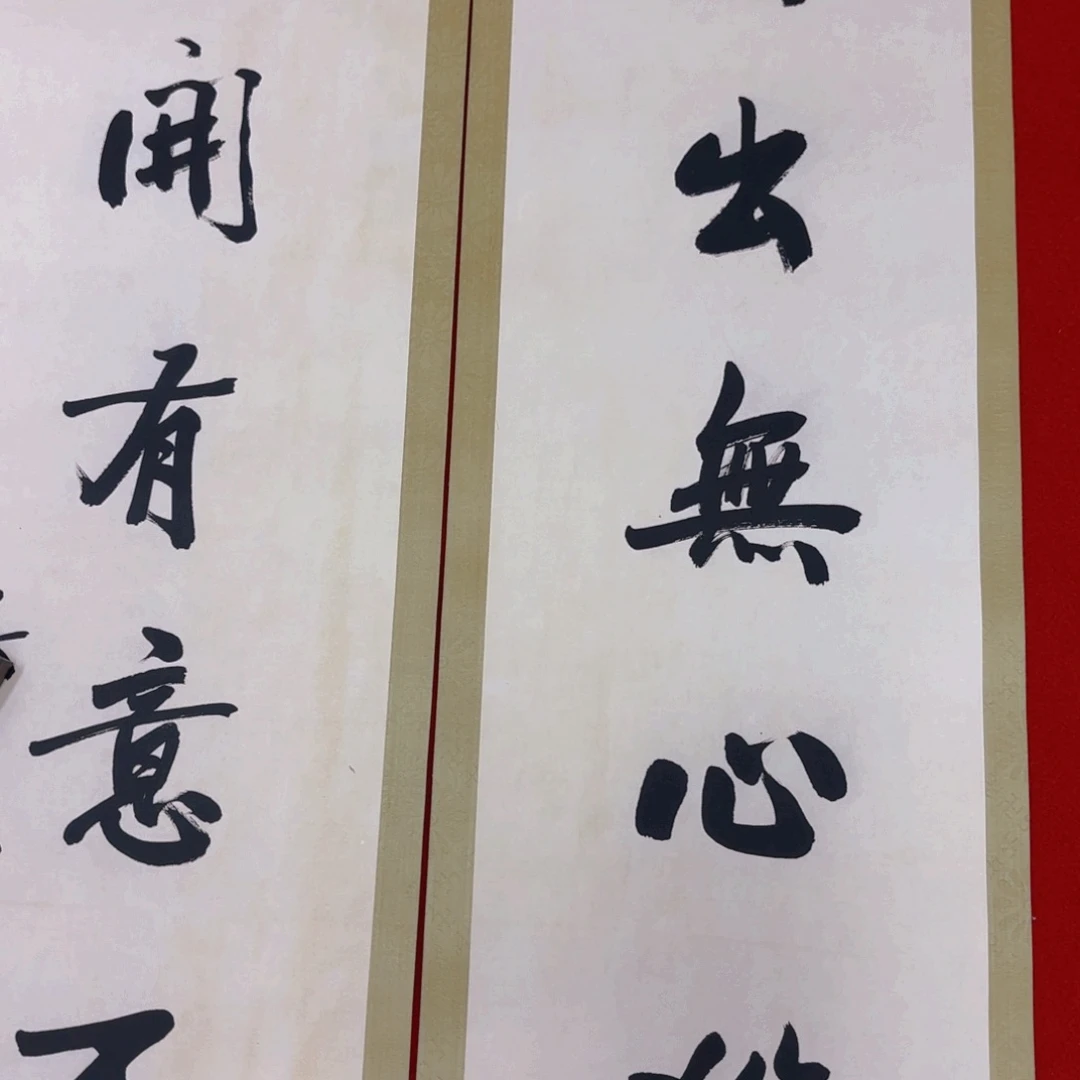 出無心
開有意